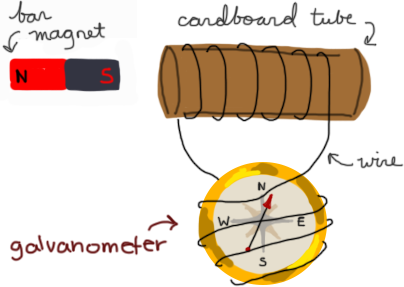 bar
magnet
N S
cardboard tube
wire
N
W E
S
galvanometer